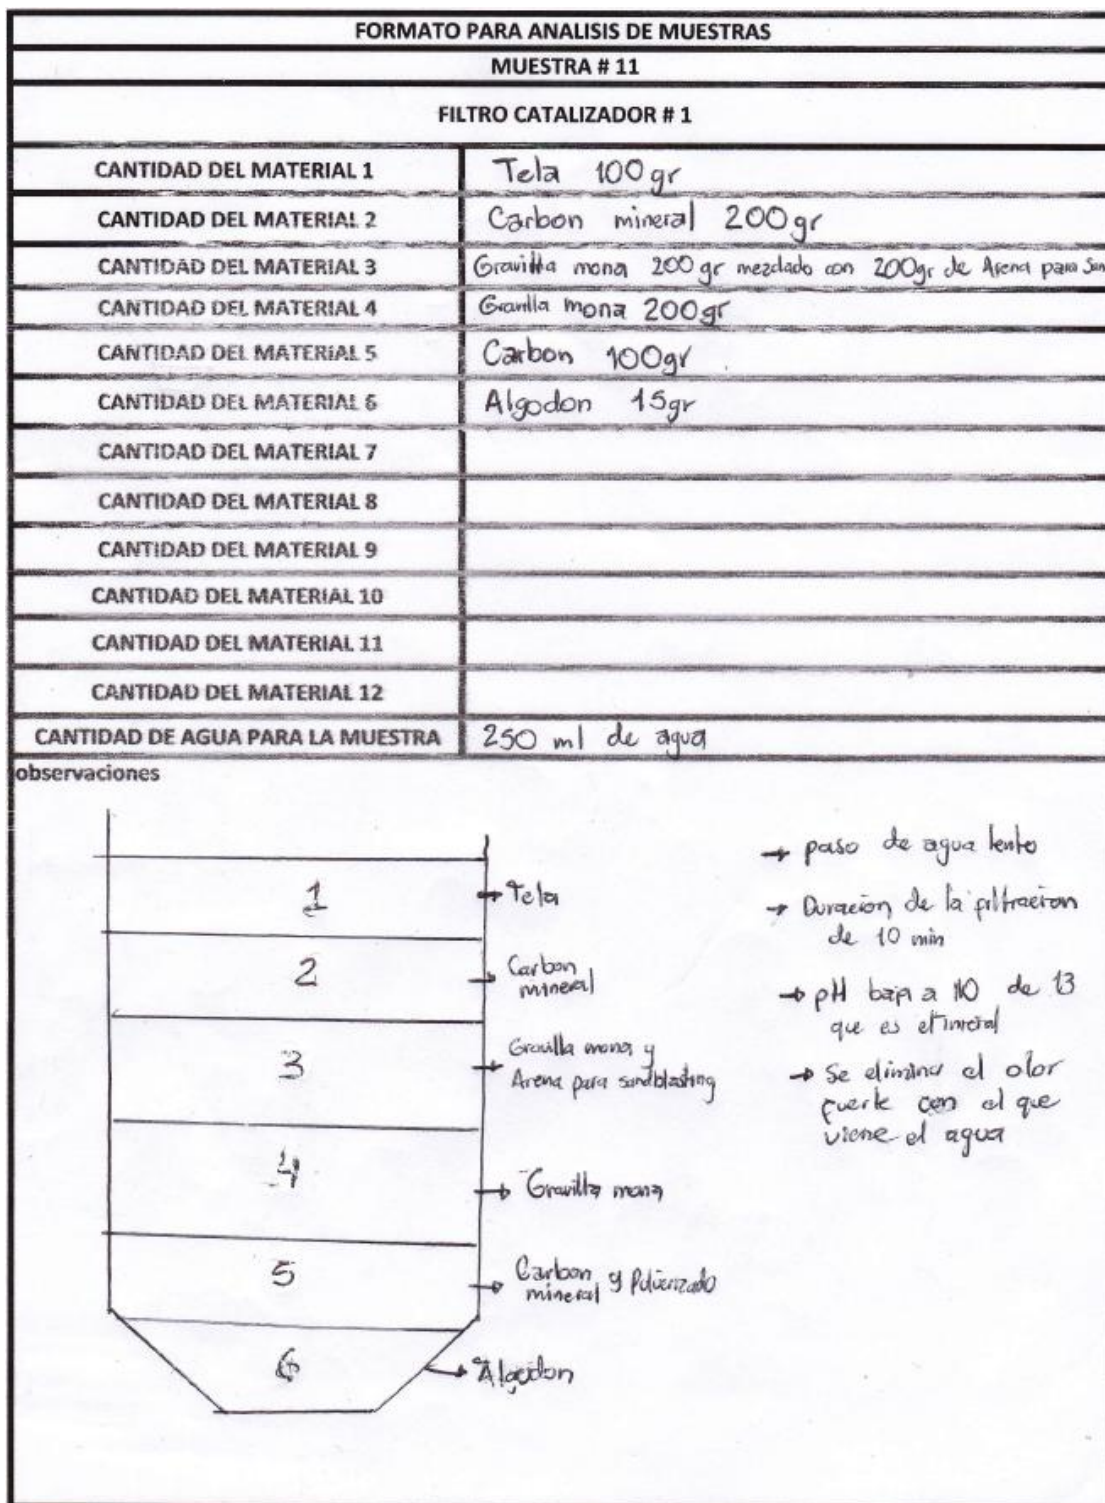 FORMATO PARA ANALISIS DE MUESTRAS
MUESTRA # 11
FILTRO CATALIZADOR # 1
CANTIDAD DEL MATERIAL 1 Tela 100 gr
CANTIDAD DEL MATERIAL 2 Carbon mineral 200 gr
CANTIDAD DEL MATERIAL 3 Gravilla mona 200 gr mezclado con 200gr de Arena para San
CANTIDAD DEL MATERIAL 4 Gravilla mona 200 gr
CANTIDAD DEL MATERIAL 5 Carbon 100gr
CANTIDAD DEL MATERIAL 6 Algodon 15gr
CANTIDAD DEL MATERIAL 7
CANTIDAD DEL MATERIAL 8
CANTIDAD DEL MATERIAL 9
CANTIDAD DEL MATERIAL 10
CANTIDAD DEL MATERIAL 11
CANTIDAD DEL MATERIAL 12
CANTIDAD DE AGUA PARA LA MUESTRA 250 ml de agua
observaciones
1 → Tela
2 → Carbon
mineral
3 → Gravilla mona y
Arena para sandblasting
4 → Gravilla mona
5 → Carbon
mineral y Pulverizado
6 → Algodon
→ paso de agua lento
→ Duracion de la filtracion
de 10 min
→ pH baja a 10 de 13
que es el inicial
→ Se elimina el olor
fuerte con el que
viene el agua